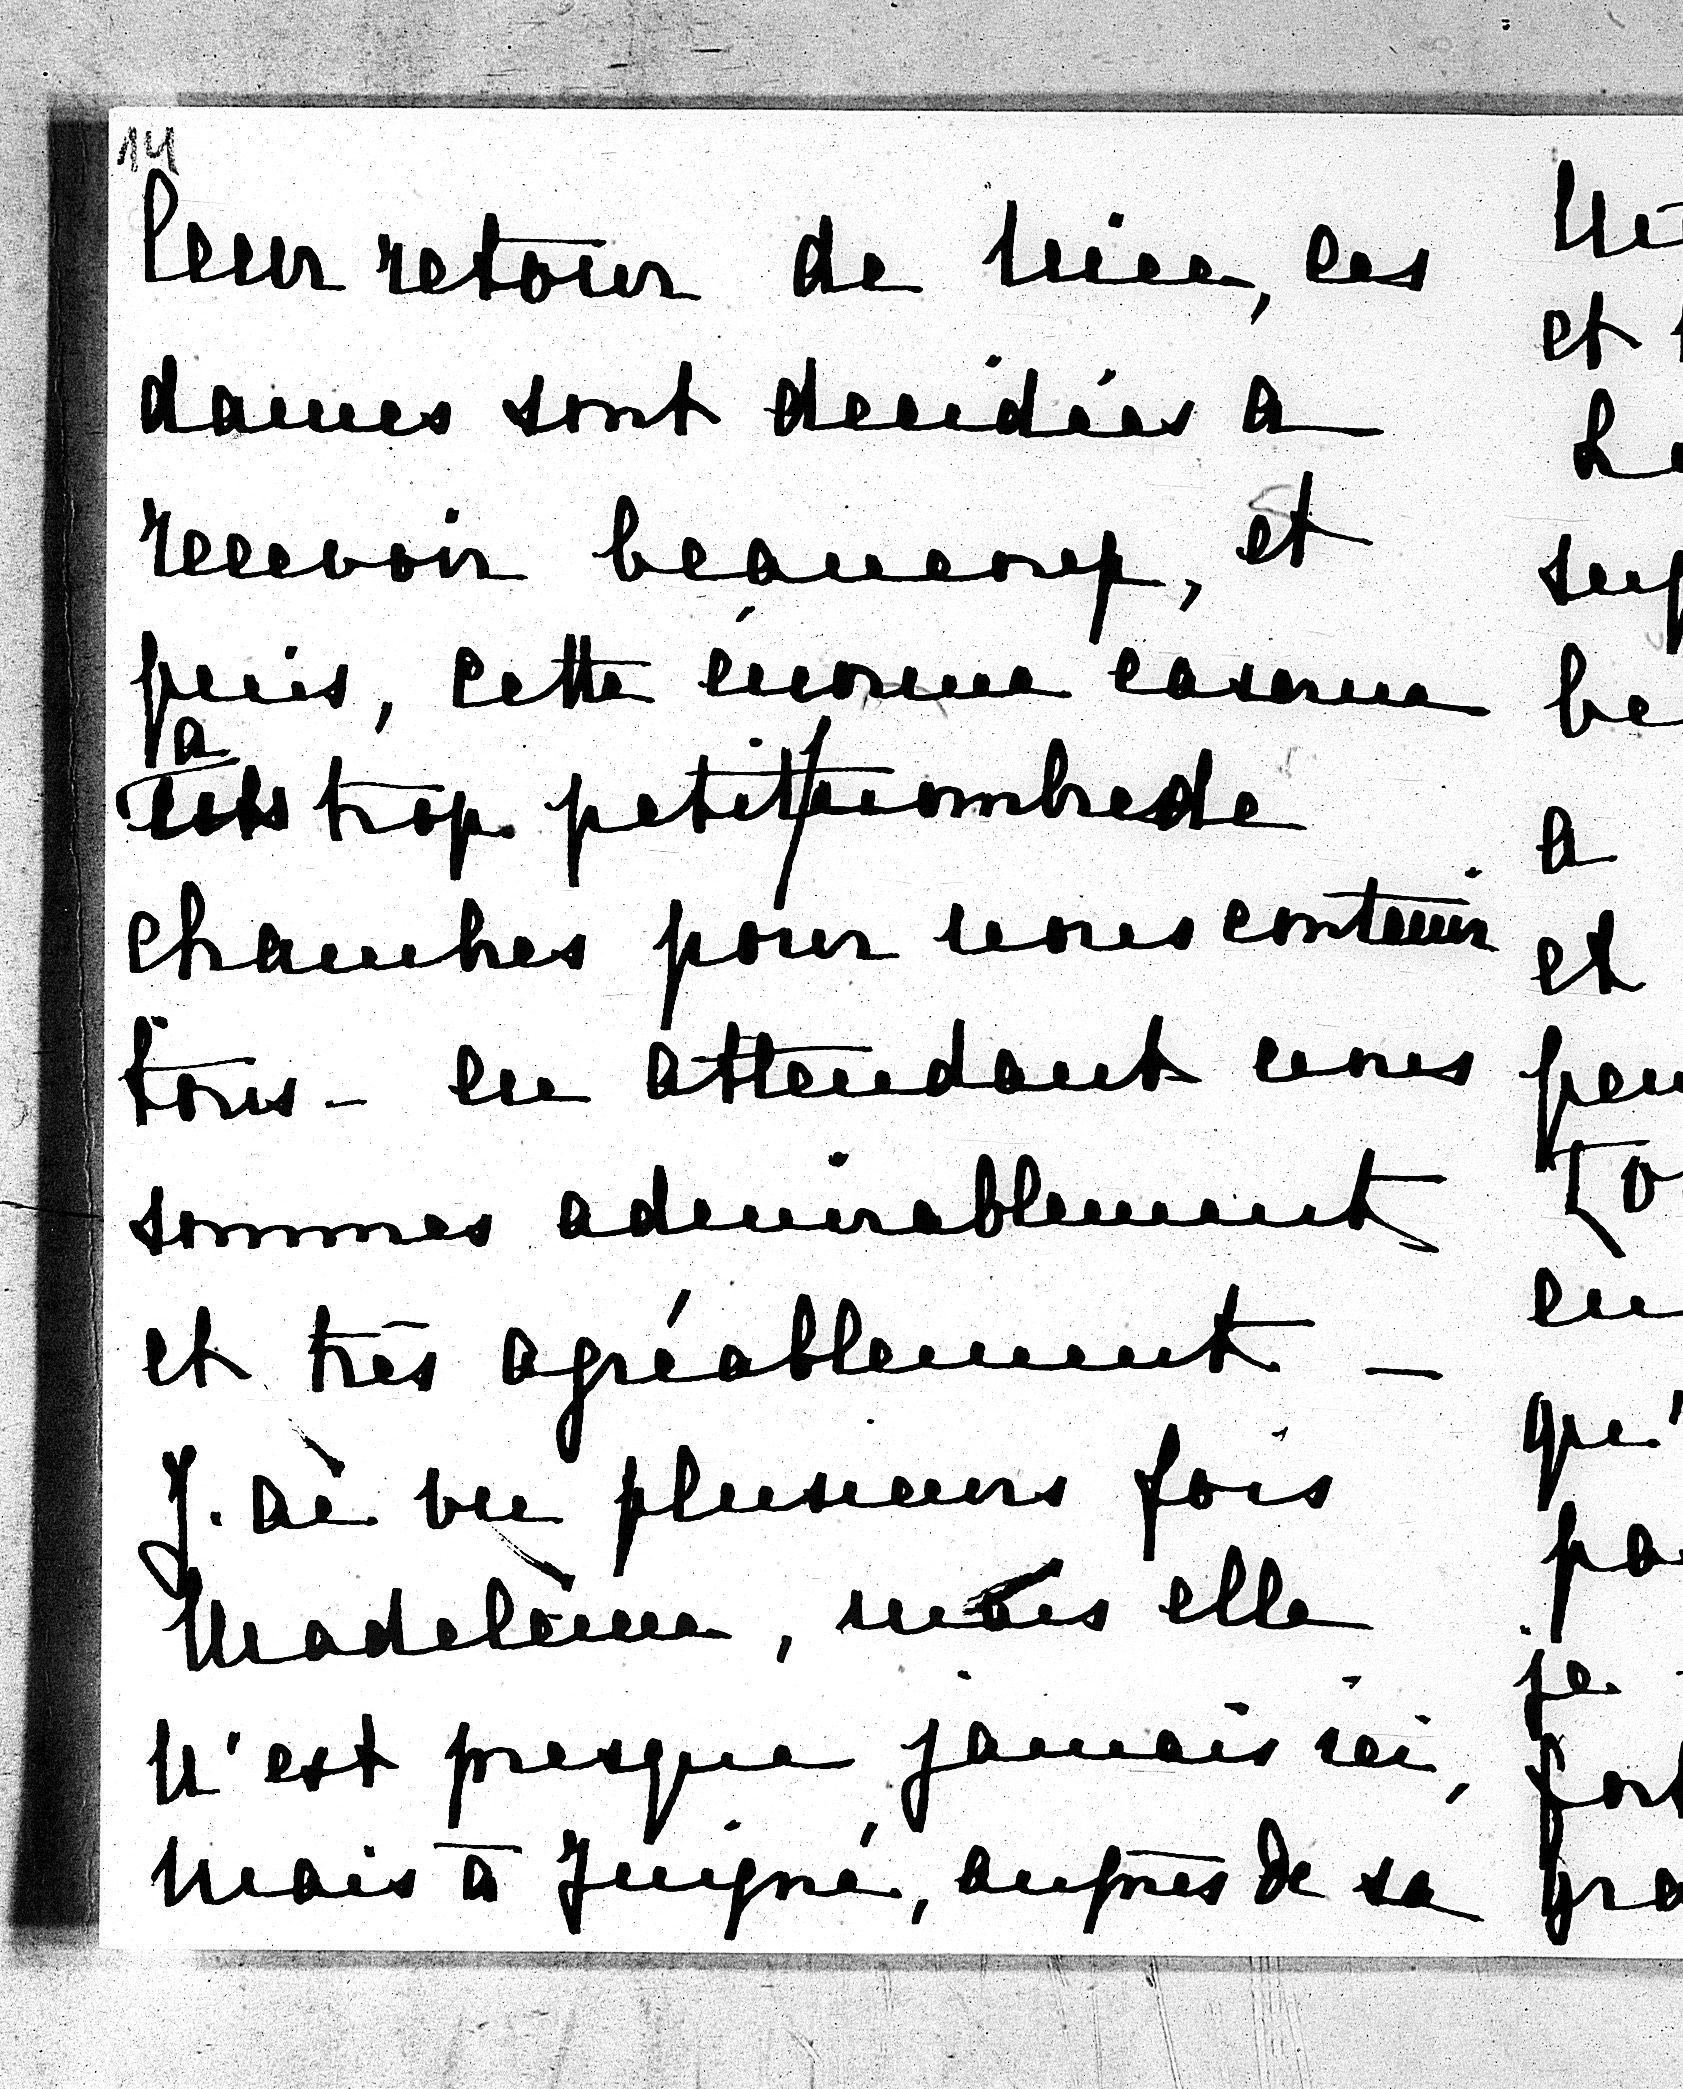 14
leur retour de Nice, ces
dames sont decidées a
recevoir beaucoup, et
puis, cette énorme caserne
a
trop petit nombre de
chambres pour nous contenir
tous - en attendant nous
sommes admirablement
et très agréablement -
J. ai vu plusieurs fois
Madeleine, mais elle
n'est presque jamais ici,
mais à Juigné, auprès de sa
et
a
et
je